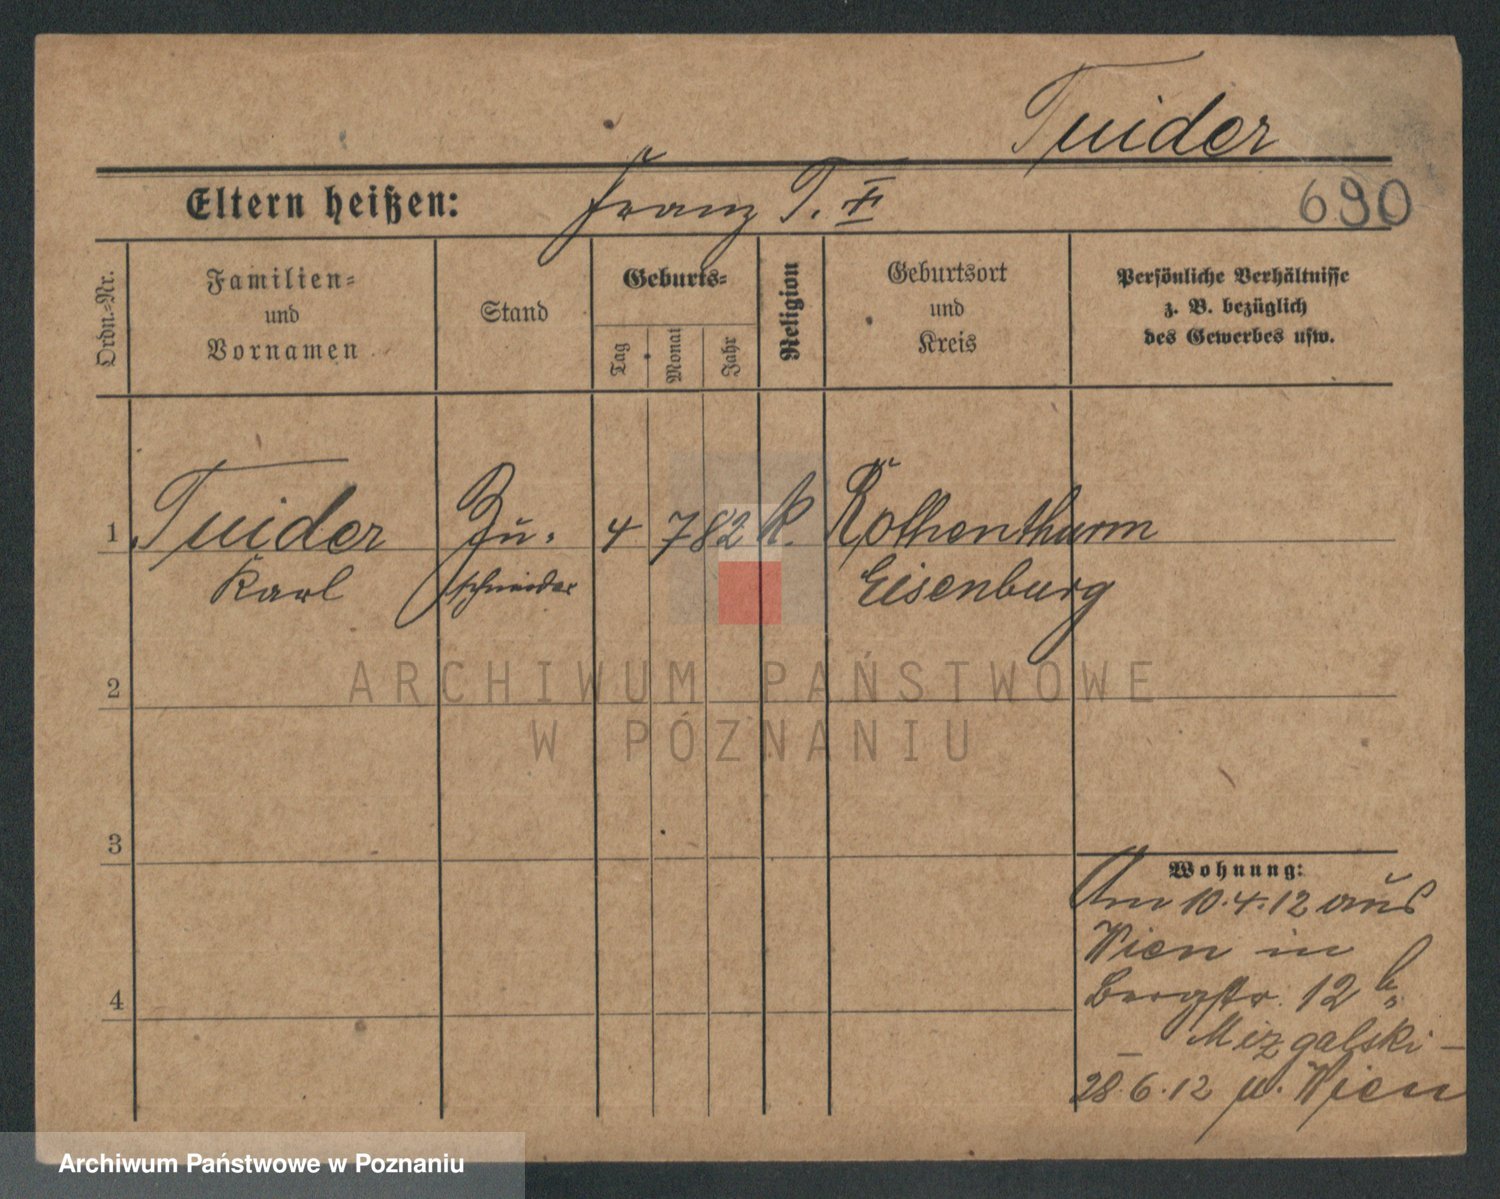 Tuider
Eltern heißen: Franz T. F
690
Ordn.-Nr.
Familien-
und
Vornamen
Stand
Geburts-
Tag
Monat
Jahr
Religion
Geburtsort
und
Kreis
Persönliche Verhältnisse
z. B. bezüglich
des Gewerbes usw.
1 Tuider Zu- 4 7 82 k. Rothenthurm
Karl schneider Eisenburg
2
3
4
Wohnung:
Am 10.4.12 aus
Wien in
Bergstr. 12 b
– Mizgalski –
28.6.12 n. Wien
ARCHIWUM PAŃSTWOWE
W POZNANIU
Archiwum Państwowe w Poznaniu